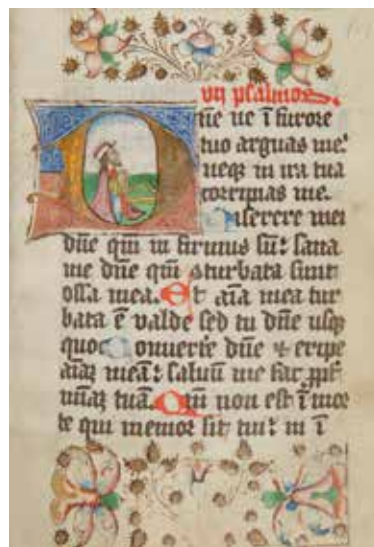 vij psalmos.
Dñe ne ī furore
tuo arguas me.
neqꝫ in ira tua
corripias me.
Miserere mei
dñe qm̄ infirmus sū: sana
me dñe qm̄ ꝯturbata sunt
ossa mea. Et aīa mea tur
bata ē valde sed tu dñe usqꝫ
quo Conuerte dñe ⁊ eripe
aīaꝫ meā: saluū me fac. ꝓpt̄
mīaꝫ tuā. Qm̄ non est ī mor
te qui memor sit tui: in ī